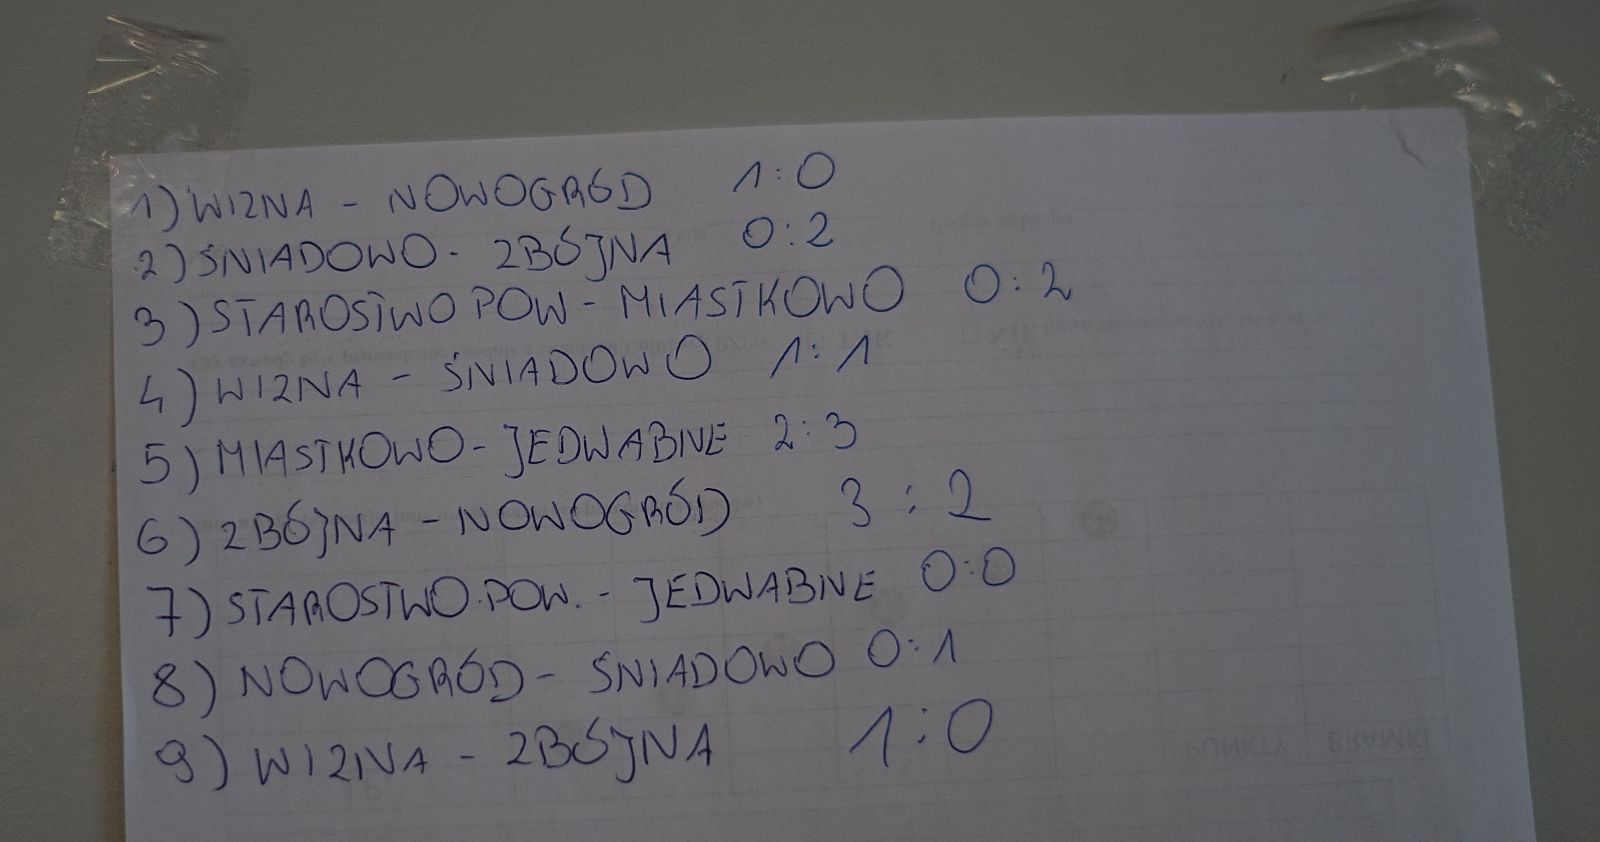 1) WIZNA - NOWOGRÓD 1:0
2) ŚNIADOWO - ZBÓJNA 0:2
3) STAROSTWO POW - MIASTKOWO 0:2
4) WIZNA - ŚNIADOWO 1:1
5) MIASTKOWO - JEDWABNE 2:3
6) ZBÓJNA - NOWOGRÓD 3:2
7) STAROSTWO POW. - JEDWABNE 0:0
8) NOWOGRÓD - ŚNIADOWO 0:1
9) WIZNA - ZBÓJNA 1:0
PUNKTY BRAMKI